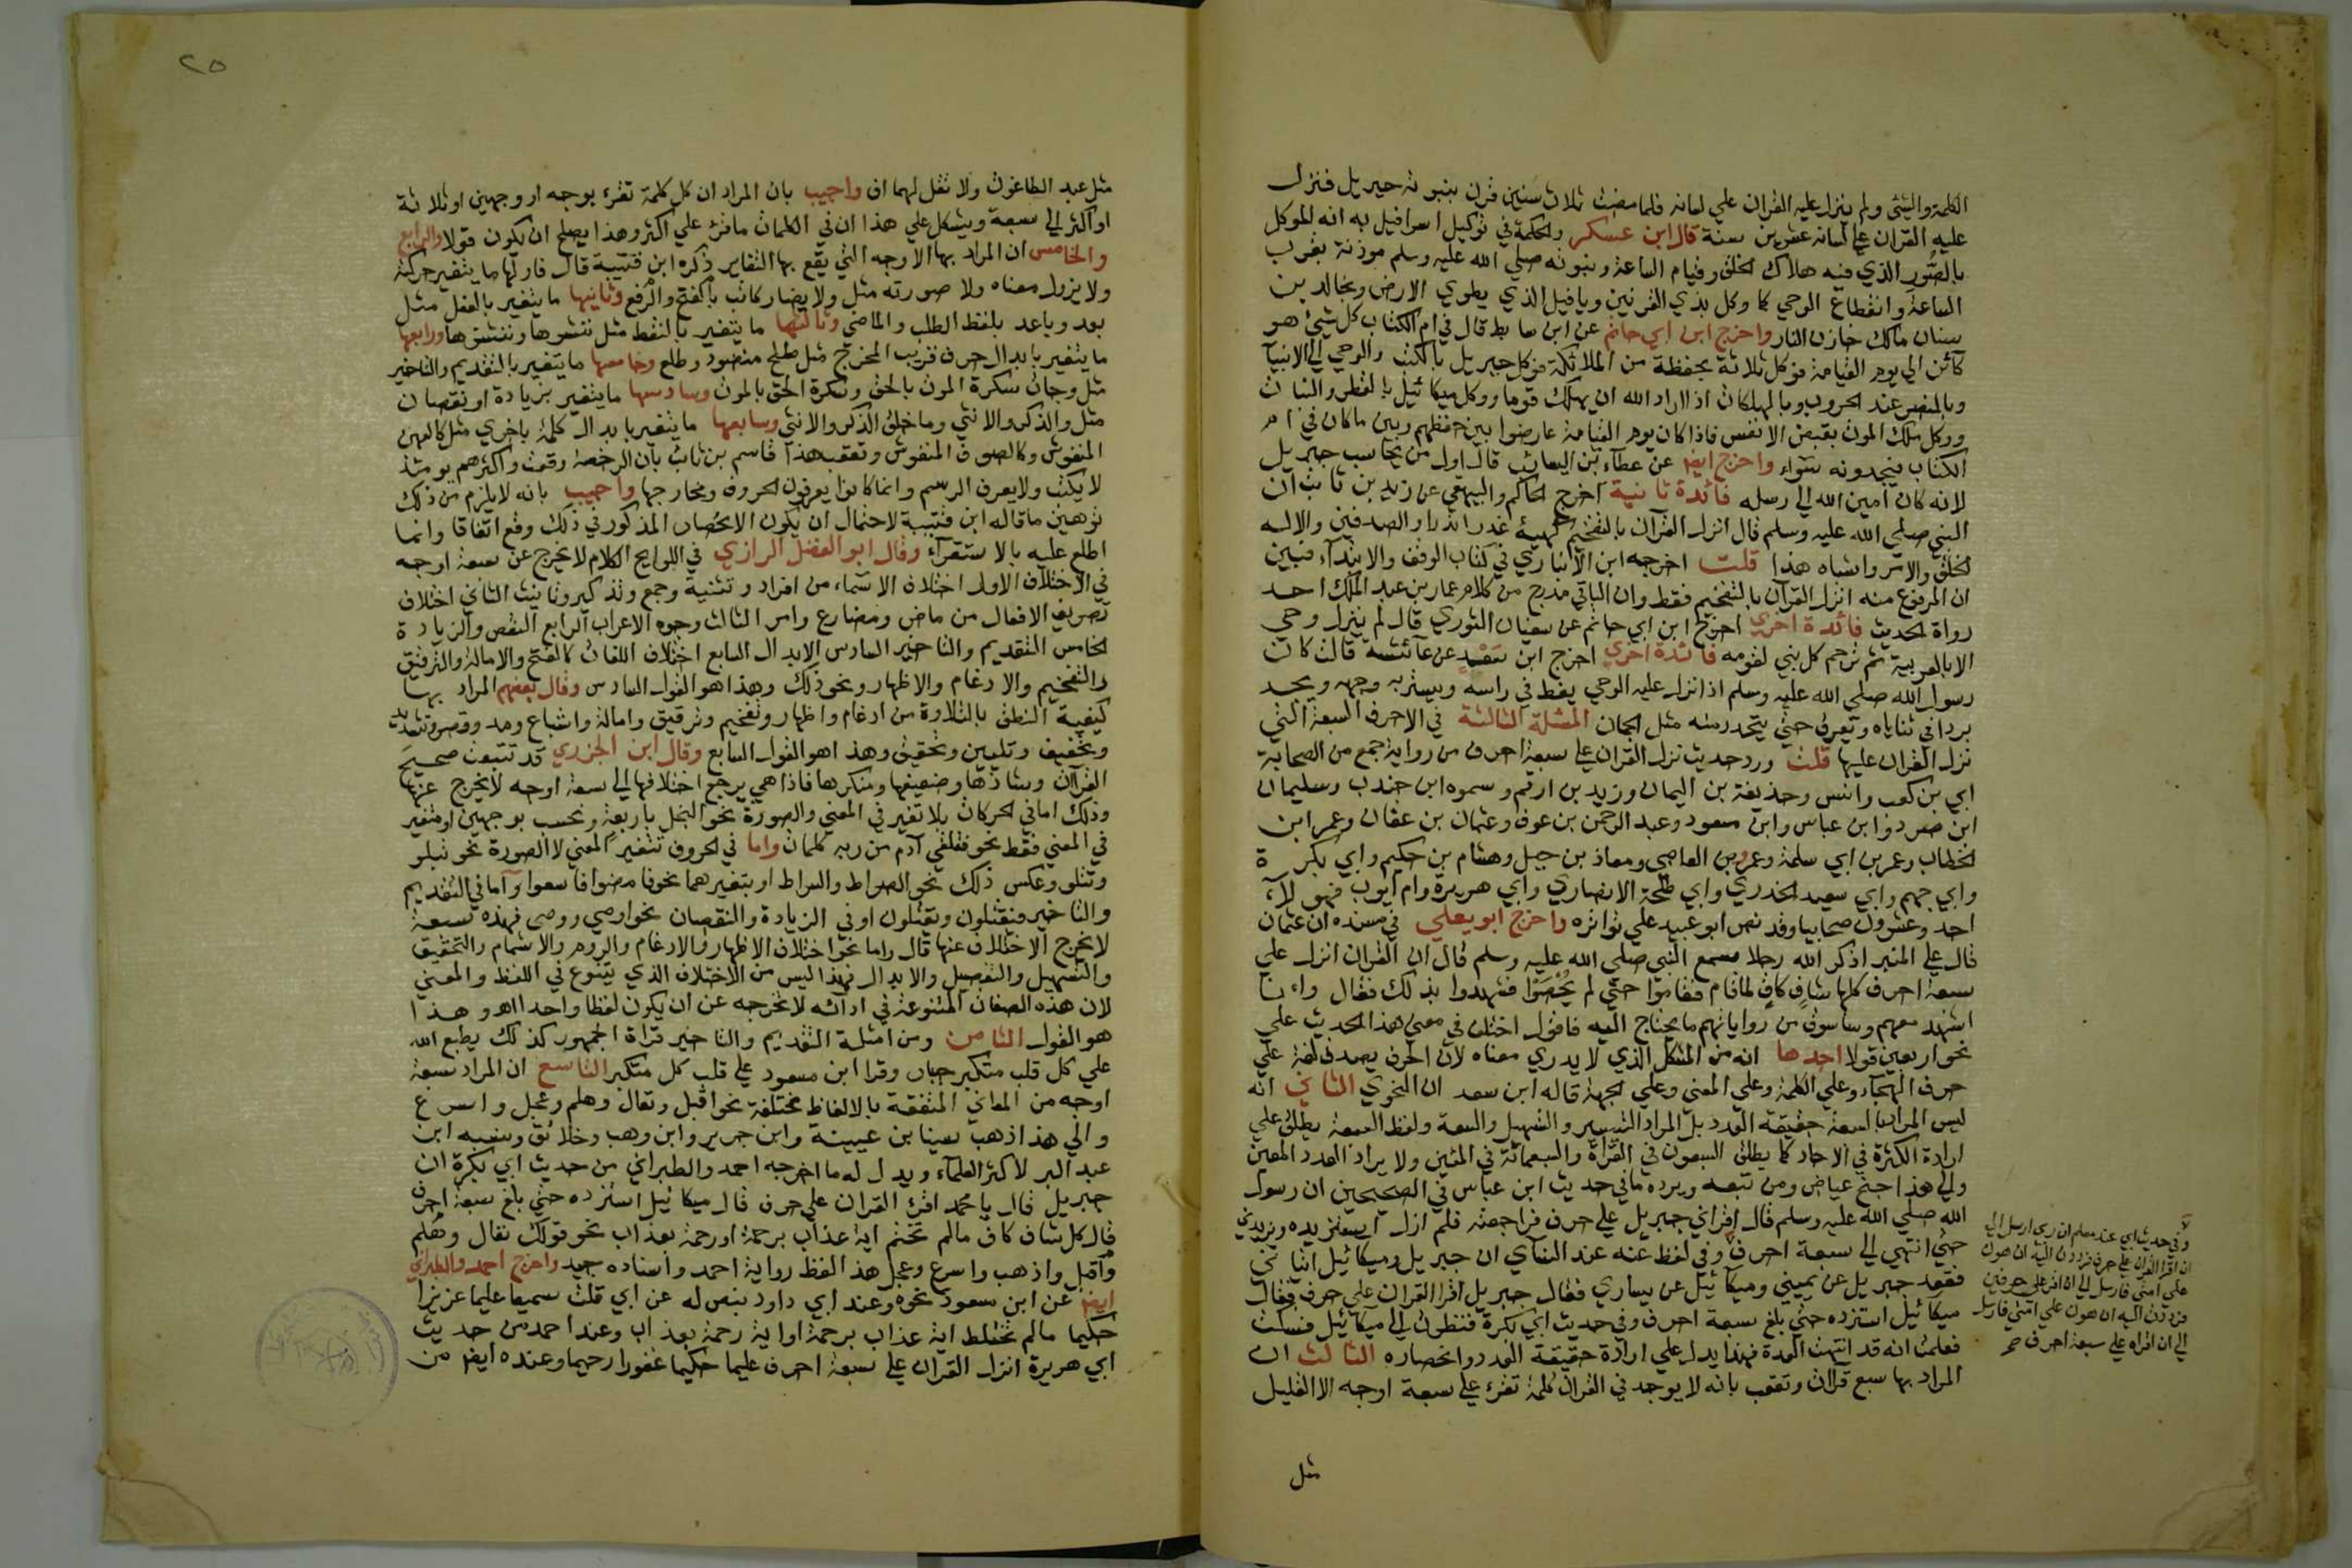 الكلمة والشئ ولم ينزل عليه القران علي لسانه فلما مضت ثلاث سنين قرن بنبوته جبريل فنزل
عليه القران علي لسانه عشرين سنة قال ابن عسكر والحكمة في توكيل اسرافيل به انه الموكل
بالصور الذي فيه هلاك الخلق وقيام الساعة ونبوته صلي الله عليه وسلم موذنة بقرب
الساعة وانقطاع الوحي كما وكل بذي القرنين ريافيل الذي يطوي الارض وبخالد بن
سنان مالك خازن النار واخرج ابن ابي حاتم عن ابن سابط قال في ام الكتاب كل شئ هو
كائن الي يوم القيامة فوكل ثلاثة بحفظه من الملائكة فوكل جبريل بالكتب والوحي الي الانبيا
وبالنصر عند الحروب وبالمهلكات اذا اراد الله ان يهلك قوما ووكل ميكائيل بالقطر والنبات
ووكل ملك الموت بقبض الانفس فاذا كان يوم القيامة عارضوا بين حفظهم وبين ما كان في ام
الكتاب فيجدونه سواء واخرج ايضا عن عطاء بن السائب قال اول من يحاسب جبريل
لانه كان امين الله الي رسله فائدة ثانية اخرج الحاكم والبيهقي عن زيد بن ثابت ان
النبي صلي الله عليه وسلم قال انزل القرآن بالتفخيم كهيئة عذرا نذرا والصدفين والا له
الخلق والامر واشباه هذا قلت اخرجه ابن الانباري في كتاب الوقف والابتدآء فبين
ان المرفوع منه انزل القرآن بالتفخيم فقط وان الباقي مدرج من كلام عمار بن عبد الملك احد
رواة الحديث فائدة اخري اخرج ابن ابي حاتم عن سفيان الثوري قال لم ينزل وحي
الا بالعربية ثم ترجم كل نبي لقومه فائدة اخري اخرج ابن سعد عن عائشة قالت كان
رسول الله صلي الله عليه وسلم اذا نزل عليه الوحي يغط في راسه ويتربد وجهه ويجد
بردا في ثناياه ويعرق حتي يتحدر منه مثل الجمان المسئلة الثالثة في الاحرف السبعة التي
نزل القران عليها قلت ورد حديث نزل القران علي سبعة احرف من رواية جمع من الصحابة
ابي بن كعب وانس وحذيفة بن اليمان وزيد بن ارقم وسمره ابن جندب وسليمان
ابن صرد وابن عباس وابن مسعود وعبد الرحمن بن عوف وعثمان بن عفان وعمر ابن
الخطاب وعمر بن ابي سلمة وعمرو بن العاصي ومعاذ بن جبل وهشام بن حكيم وابي بكرة
وابي جهم وابي سعيد الخدري وابي طلحة الانصاري وابي هريرة وام ايوب فهولاء
احد وعشرون صحابيا وقد نص ابو عبيد علي تواتره واخرج ابو يعلي في مسنده ان عثمان
قال علي المنبر اذكر الله رجلا سمع النبي صلي الله عليه وسلم قال ان القران انزل علي
سبعة احرف كلها شاف كاف لما قام فقاموا حتي لم يحصوا فشهدوا بذلك فقال وانا
اشهد معهم وساسوق من رواياتهم ما يحتاج اليه فاقول اختلف في معني هذا الحديث علي
نحو اربعين قولا احدها انه من المشكل الذي لا يدري معناه لان الحرف يصدق لغة علي
حرف الهجاء وعلي الكلمة وعلي المعني وعلي الجهة قاله ابن سعدان النحوي الثاني انه
ليس المراد بالسبعة حقيقة العدد بل المراد التيسير والتسهيل والسعة ولفظ السبعة يطلق علي
ارادة الكثرة في الاحاد كما يطلق السبعون في القراة والسبعمائة في المئين ولا يراد العدد المعين
والي هذا جنح عياض ومن تبعه ويرده ما في حديث ابن عباس في الصحيحين ان رسول
الله صلي الله عليه وسلم قال اقراني جبريل علي حرف فراجعته فلم ازل استزيده ويزيدني
حتي انتهي الي سبعة احرف وفي لفظ عنه عند النسآي ان جبريل وميكائيل اتياني
فقعد جبريل عن يميني وميكآئيل عن يساري فقال جبريل اقرا القران علي حرف فقال
ميكائيل استزده حتي بلغ سبعة احرف وفي حديث ابي بكرة فنظرت الي ميكآئيل فسكت
فعلمت انه قد انتهت العدة فهذا يدل علي ارادة حقيقة العدد وانحصاره الثالث ان
المراد بها سبع قراات وتعقب بانه لا يوجد في القران كلمة تقرء علي سبعة اوجه الا القليل
مثل
وفي حديث ابي عند مسلم ان ربي ارسل الي
ان اقرا القران علي حرف فرددت اليه ان هون
علي امتي فارسل الي ان اقراه علي حرفين
فرددت اليه ان هون علي امتي فارسل
الي ان اقراه علي سبعة احرف صح
٢٥
مثل عبد الطاغوت ولا تقل لهما اف واجيب بان المراد ان كل كلمة تقرء بوجه او وجهين او ثلاثة
او اكثر الي سبعة ويشكل علي هذا ان في الكلمات ما قرئ علي اكثر وهذا يصلح ان يكون قولا والرابع
والخامس ان المراد بها الاوجه التي يقع بها التغاير ذكره ابن قتيبة قال فاولها ما يتغير حركته
ولا يزول معناه ولا صورته مثل ولا يضار كاتب بالفتح والرفع وثانيها ما يتغير بالفعل مثل
بعد وباعد بلفظ الطلب والماضي وثالثها ما يتغير بالنقط مثل ننشرها وننشزها ورابعها
ما يتغير بابدال حرف قريب المخرج مثل طلح منضود وطلع وخامسها ما يتغير بالتقديم والتاخير
مثل وجات سكرة الموت بالحق وسكرة الحق بالموت وسادسها ما يتغير بزيادة او نقصان
مثل والذكر والانثي وما خلق الذكر والانثي وسابعها ما يتغير بابدال كلمة باخري مثل كالعهن
المنفوش وكالصوف المنفوش وتعقب هذا قاسم بن ثابت بان الرخصة وقعت واكثرهم يومئذ
لا يكتب ولا يعرف الرسم وانما كانوا يعرفون الحروف ومخارجها واجيب بانه لا يلزم من ذلك
توهين ما قاله ابن قتيبة لاحتمال ان يكون الانحصار المذكور في ذلك وقع اتفاقا وانما
اطلع عليه بالاستقراء وقال ابو الفضل الرازي في اللوايح الكلام لا يخرج عن سبعة اوجه
في الاختلاف الاول اختلاف الاسماء من افراد وتثنية وجمع وتذكير وتانيث الثاني اختلاف
تصريف الافعال من ماض ومضارع وامر الثالث وجوه الاعراب الرابع النقص والزيادة
الخامس التقديم والتاخير السادس الابدال السابع اختلاف اللغات كالفتح والامالة والترقيق
والتفخيم والادغام والاظهار ونحو ذلك وهذا هو القول السادس وقال بعضهم المراد بها
كيفية النطق بالتلاوة من ادغام واظهار وتفخيم وترقيق وامالة واشباع ومد وقصر وتشديد
وتخفيف وتليين وتحقيق وهذا هو القول السابع وقال ابن الجزري قد تتبعت صحيح
القراآت وشاذها وضعيفها ومنكرها فاذا هي يرجع اختلافها الي سبعة اوجه لا يخرج عنها
وذلك اما في الحركات بلا تغير في المعني والصورة نحو البخل باربعة ويحسب بوجهين او متغير
في المعني فقط نحو فتلقي آدم من ربه كلمات واما في الحروف بتغير المعني لا الصورة نحو تبلو
وتتلو وعكس ذلك نحو الصراط والسراط او بتغيرهما نحو فامضوا فاسعوا واما في التقديم
والتاخير فيقتلون ويقتلون او في الزيادة والنقصان نحو اوصي ووصي فهذه سبعة
لا يخرج الاختلاف عنها قال واما نحو اختلاف الاظهار والادغام والروم والاشمام والتحقيق
والتسهيل والنقل والابدال فهذا ليس من الاختلاف الذي يتنوع في اللفظ والمعني
لان هذه الصفات المتنوعة في ادائه لا تخرجه عن ان يكون لفظا واحدا اهـ وهذا
هو القول الثامن ومن امثلة التقديم والتاخير قراة الجمهور كذلك يطبع الله
علي كل قلب متكبر جبار وقرا ابن مسعود علي قلب كل متكبر التاسع ان المراد سبعة
اوجه من المعاني المتفقة بالالفاظ مختلفة نحو اقبل وتعال وهلم وعجل واسرع
والي هذا ذهب سفيان بن عيينة وابن جرير وابن وهب وخلائق ونسبه ابن
عبد البر لاكثر العلمآء ويدل له ما اخرجه احمد والطبراني من حديث ابي بكرة ان
جبريل قال يا محمد اقرئ القران علي حرف قال ميكائيل استزده حتي بلغ سبعة احرف
قال كل شاف كاف مالم تختم اية عذاب برحمة او رحمة بعذاب نحو قولك تعال وهلم
واقبل واذهب واسرع وعجل هذ اللفظ رواية احمد واسناده جيد واخرج احمد والطبراني
ايضا عن ابن مسعود نحوه وعند ابي داود بنص له عن ابي قلت سميعا عليما عزيزا
حكيما مالم تخلط اية عذاب برحمة او اية رحمة بعذاب وعند احمد من حديث
ابي هريرة انزل القران علي سبعة احرف عليما حكيما غفورا رحيما وعنده ايضا من